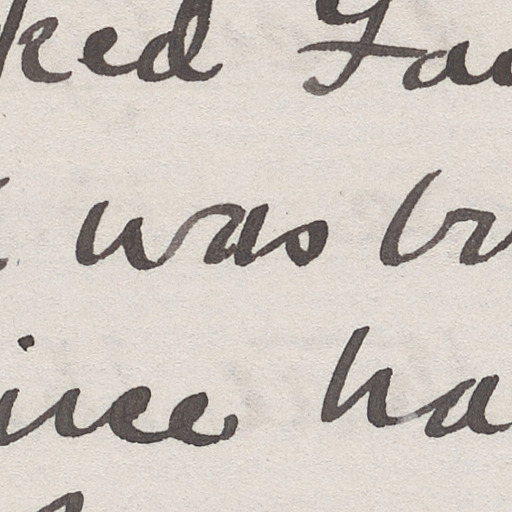 ked Fa
was br
ince ha